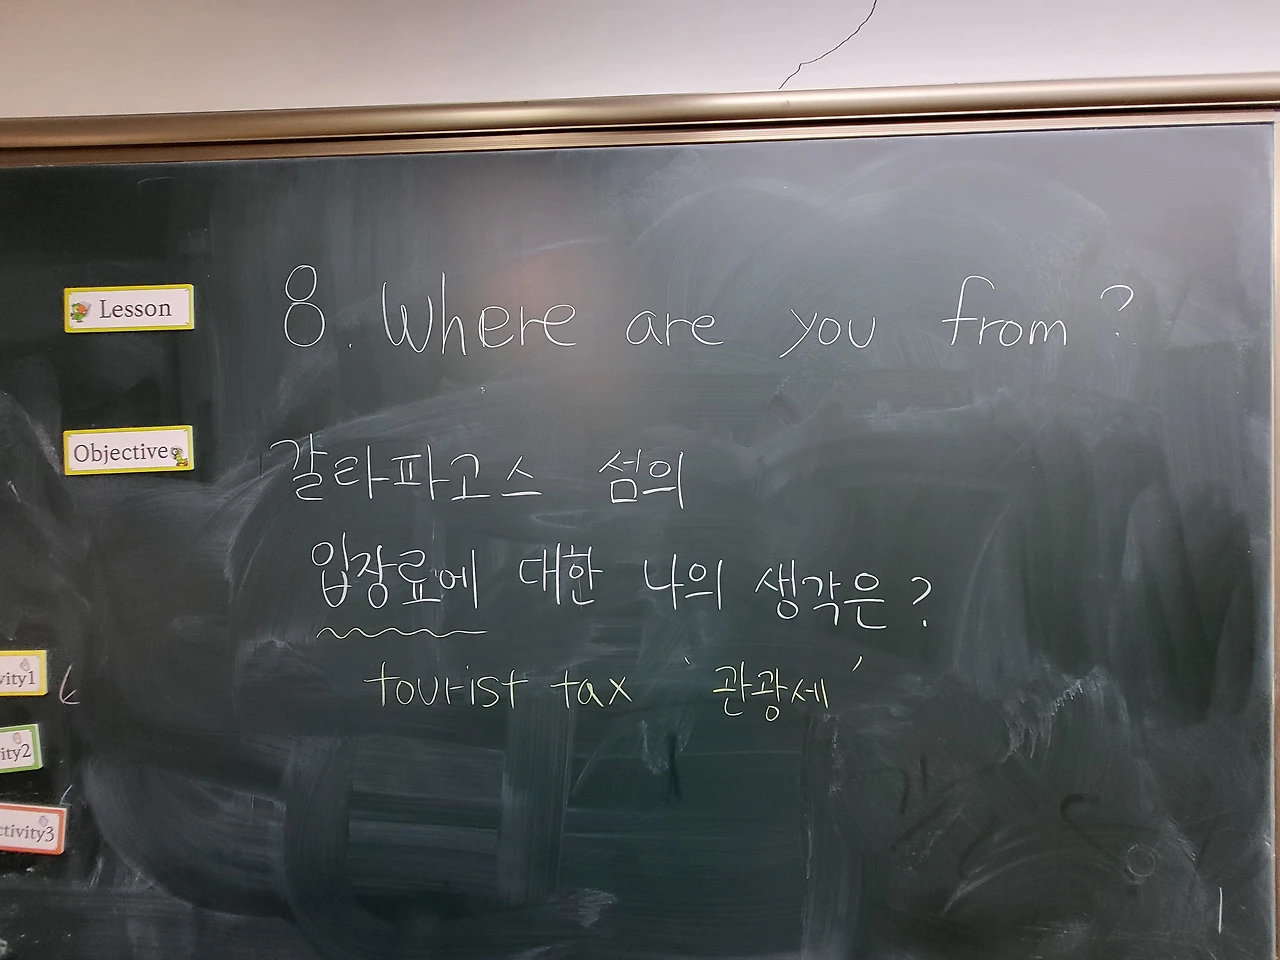 Lesson 8. Where are you from?
Objective 갈타파고스 섬의
입장료에 대한 나의 생각은?
tourist tax '관광세'
vity1
ity2
ctivity3